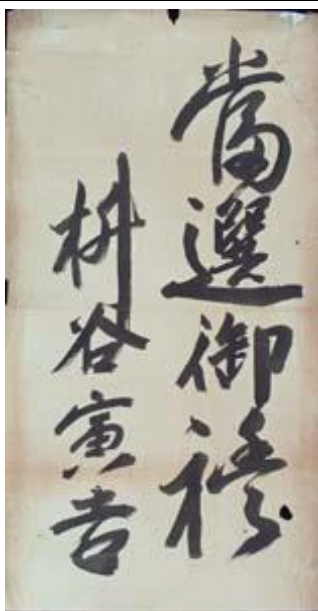 當選御禮
桝谷寅吉